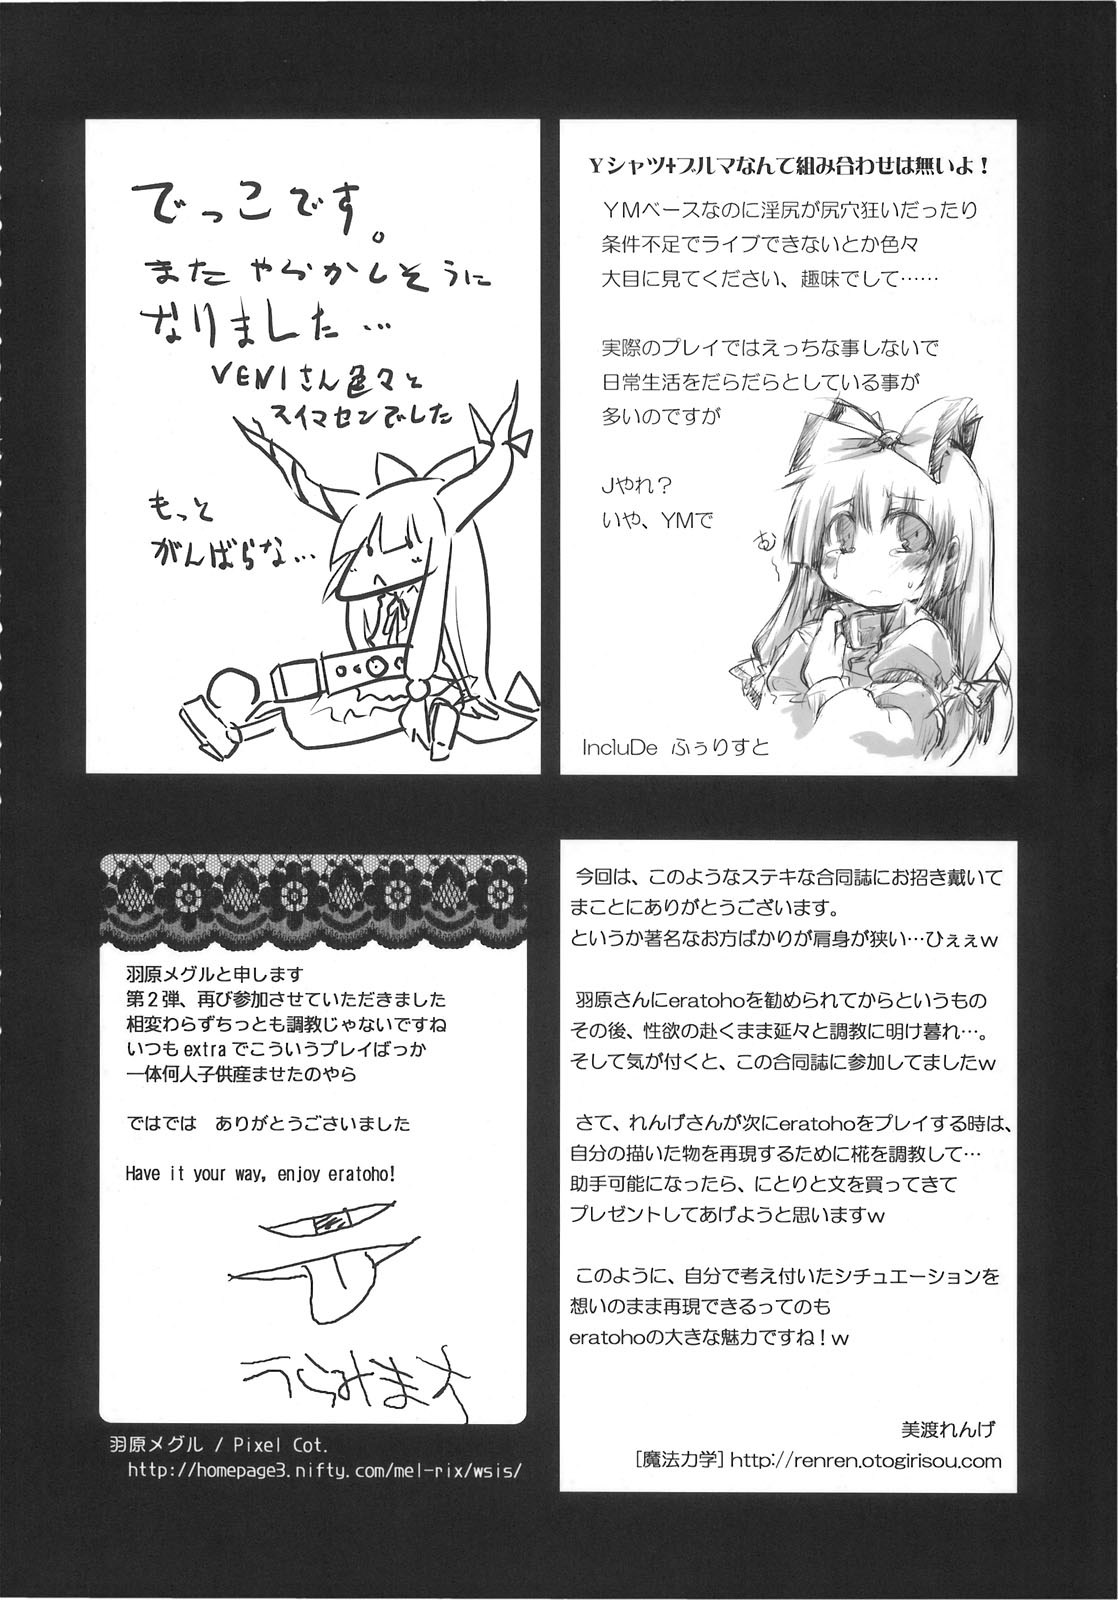 でっこです。
また やらかしそうに
なりました…
VENIさん色々と
スイマセンでした
もっと
がんばらな…
Yシャツ+ブルマなんて組み合わせは無いよ！
YMベースなのに淫尻が尻穴狂いだったり
条件不足でライブできないとか色々
大目に見てください、趣味でして……
実際のプレイではえっちな事しないで
日常生活をだらだらとしている事が
多いのですが
Jやれ？
いや、YMで
む
IncluDe ふぅりすと
羽原メグルと申します
第2弾、再び参加させていただきました
相変わらずちっとも調教じゃないですね
いつもextraでこういうプレイばっか
一体何人子供産ませたのやら
ではでは　ありがとうございました
Have it your way, enjoy eratoho!
うらみます
羽原メグル / Pixel Cot.
http://homepage3.nifty.com/mel-rix/wsis/
今回は、このようなステキな合同誌にお招き戴いて
まことにありがとうございます。
というか著名なお方ばかりが肩身が狭い…ひぇぇｗ
羽原さんにeratohoを勧められてからというもの
その後、性欲の赴くまま延々と調教に明け暮れ…。
そして気が付くと、この合同誌に参加してましたｗ
さて、れんげさんが次にeratohoをプレイする時は、
自分の描いた物を再現するために椛を調教して…
助手可能になったら、にとりと文を買ってきて
プレゼントしてあげようと思いますｗ
このように、自分で考え付いたシチュエーションを
想いのまま再現できるってのも
eratohoの大きな魅力ですね！ｗ
美渡れんげ
[魔法力学] http://renren.otogirisou.com